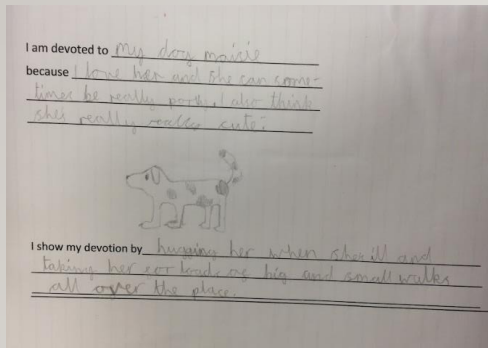 I am devoted to my dog maisie
because I love her and she can some-
times be really . I also think
shes really really cute.
I show my devotion by hugging her when she ill and
taking her for loads of big and small walks
all over the place.